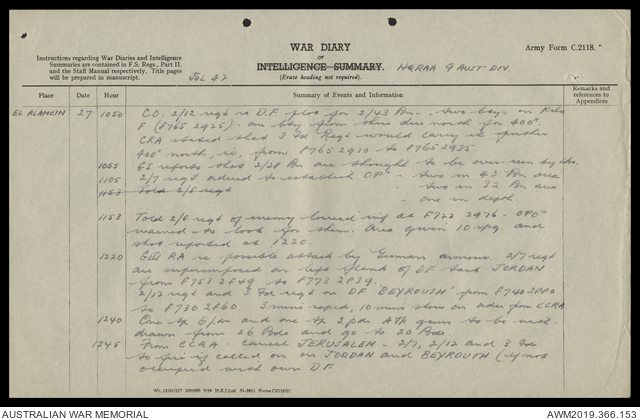 WAR DIARY
or
INTELLIGENCE SUMMARY.
(Erase heading not required).
Army Form C.2118.
Instructions regarding War Diaries and Intelligence
Summaries are contained in F.S. Regs., Part II.
and the Staff Manual respectively. Title pages
will be prepared in manuscript.
JUL 42
HQRAA 9 AUST DIV.
Place Date Hour Summary of Events and Information Remarks and references to Appendices
EL ALAMEIN 27 1050 CO. 2/12 regt re D.F. plan for 2/43 Bn - two btys on Kilo
F (F765 2925). one bty from there due north for 400x.
CRA stated that 3 Fd Regt would carry it further
400x north, ie, from 8765 2930 to 8765 2935.
1055 GI reports that 2/28 Bn are thought to be over-run by
1105 2/7 regt advised to establish OPs - two in 43 Bn area
1153 Told 2/6 regt - two in 32 Bn area
- one in depth
1153 Told 2/6 regt of enemy lorried inf at F722 2976 - OPO
warned to look for them. Area given 10 rpg. and
shoot reported at 1220.
1220 GIII RA re possible attack by German armour. 2/7 regt
are superimposed on left flank of DF task JORDAN
from 8753 2849 to 8773 2839.
2/12 regt and 3 Fd regt on DF "BEYROUTH" from F744 2880
to 8730 2860. 3 mins rapid, 10 mins slow on order from CCRA.
1240 One tp 6/pdr and one tp 2/pdr ATK guns to be with-
drawn from 26 Bde and go to 20 Bde.
1245 From CCRA. Cancel JERUSALEM - 2/7, 2/12 and 3 Fd
to fire if called on on JORDAN and BEYROUTH (if not
occupied with own DF.
AUSTRALIAN WAR MEMORIAL
AWM2019.366.153